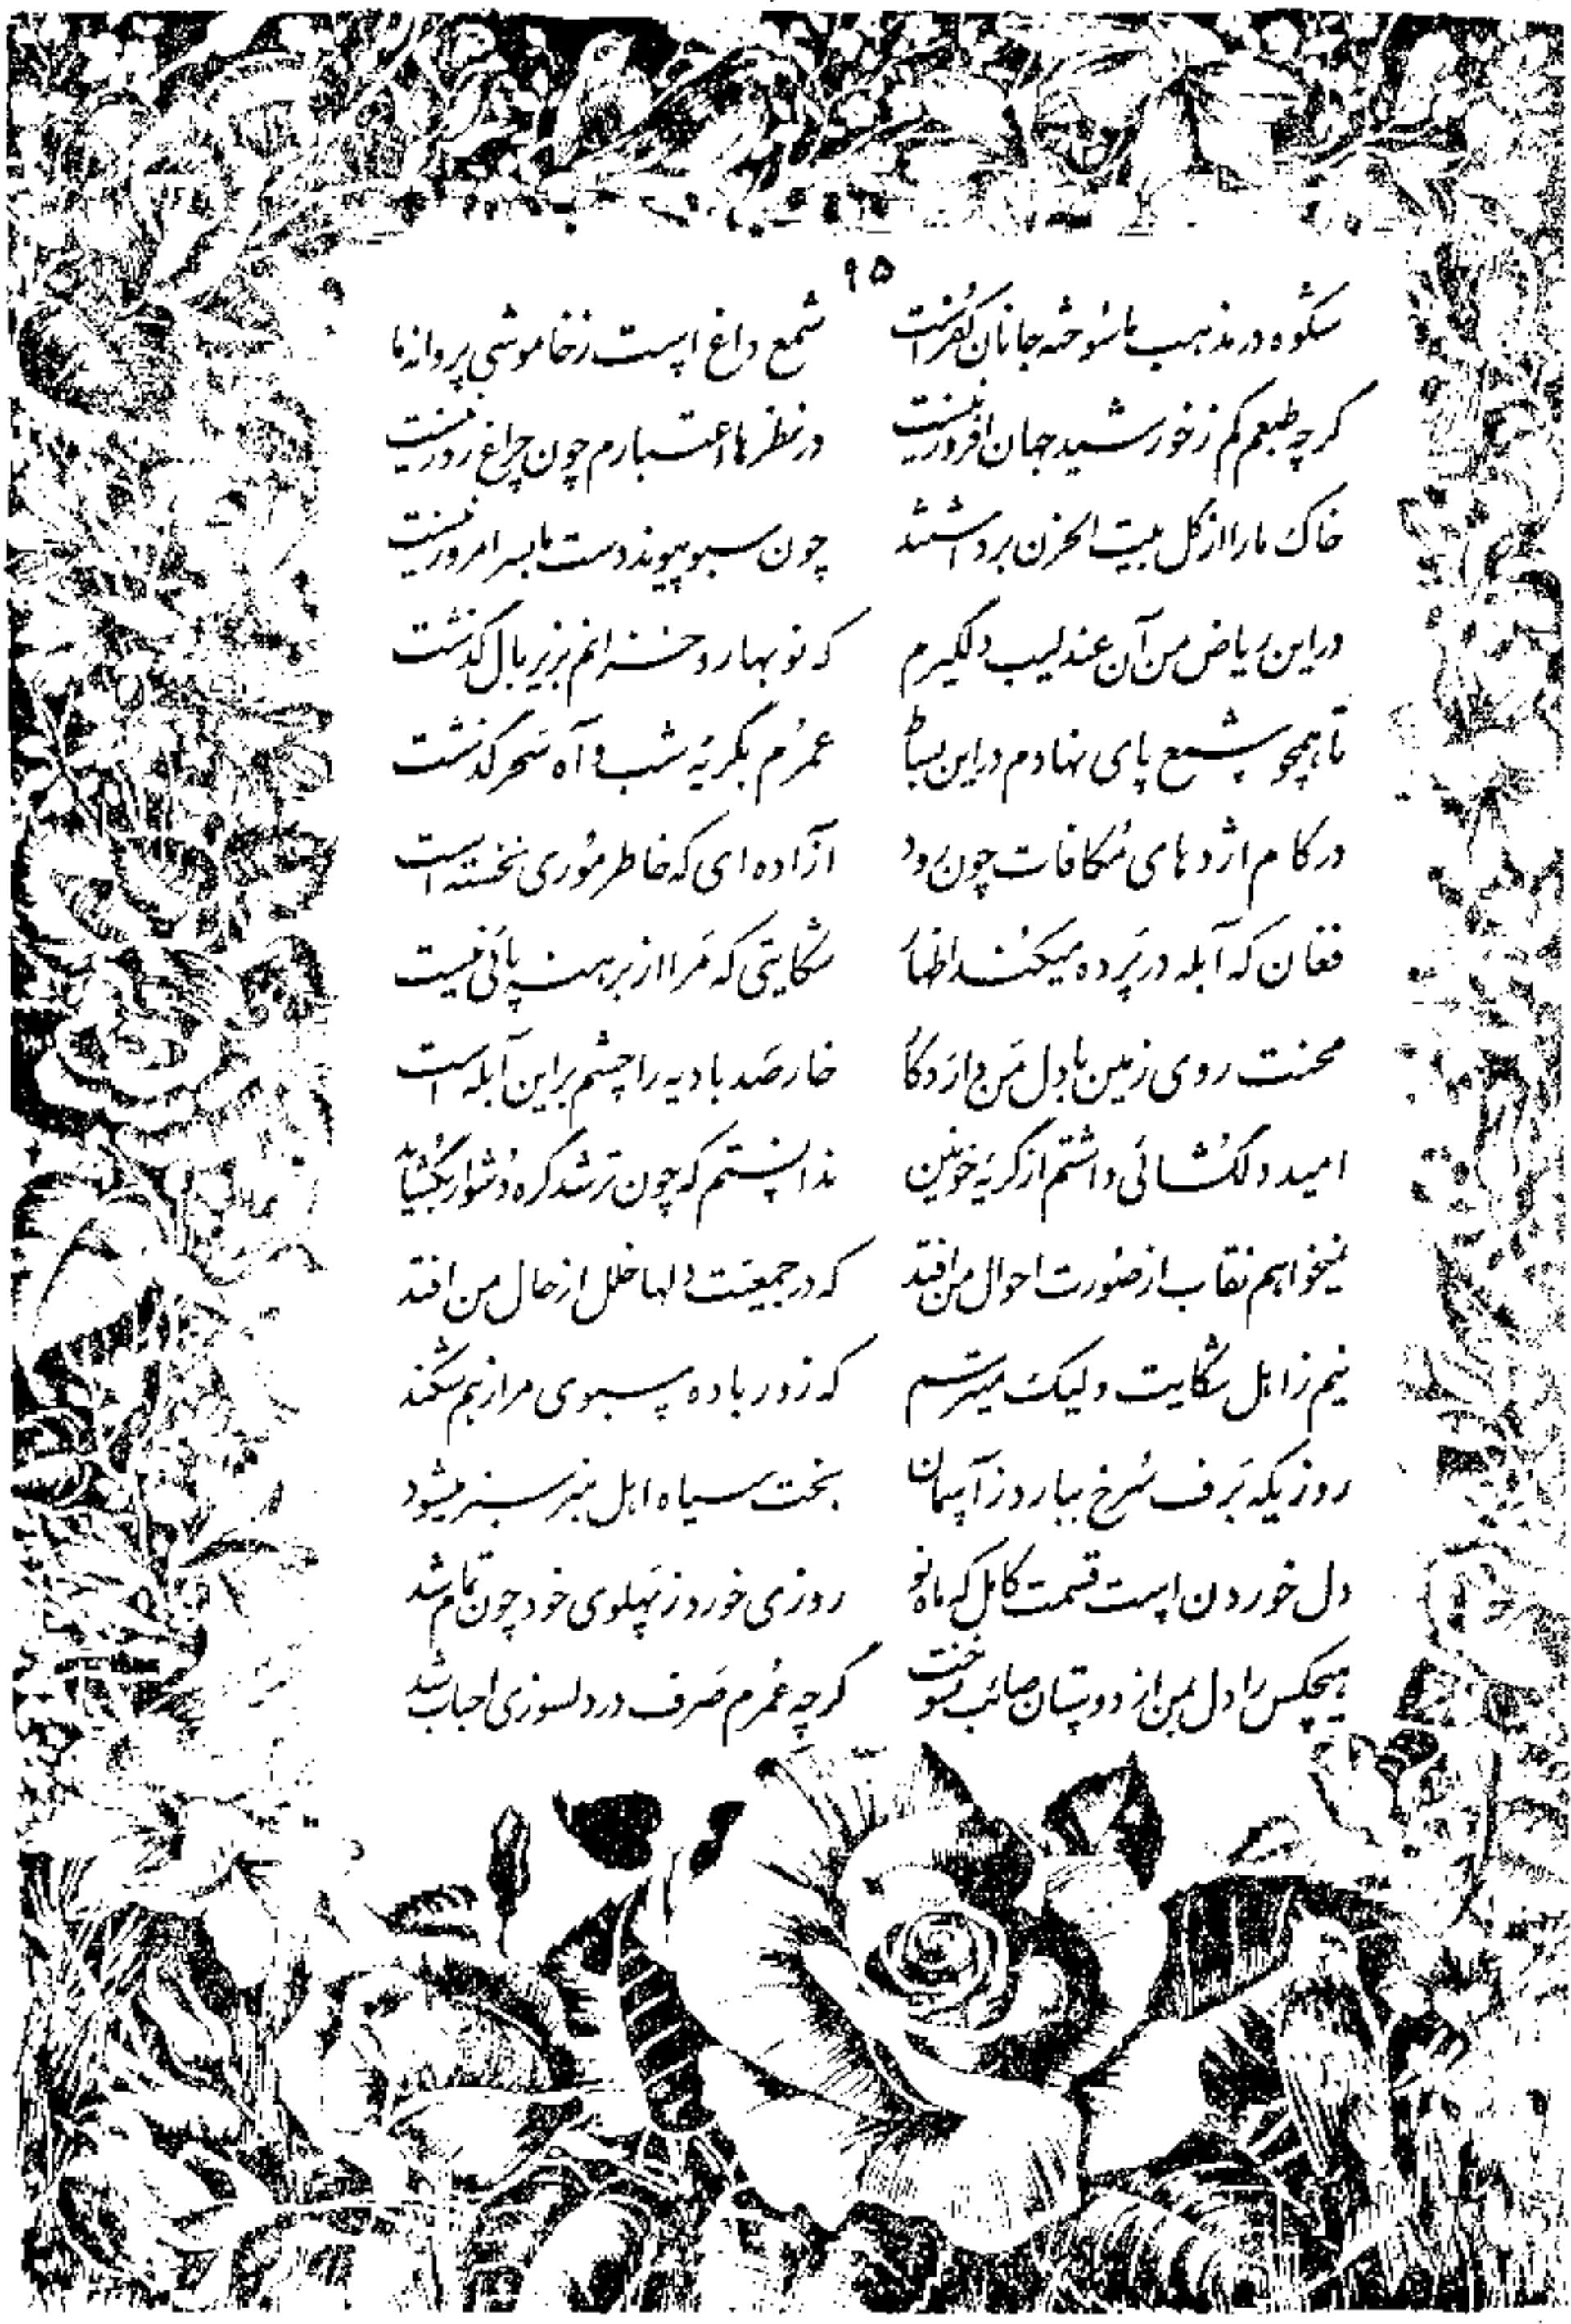 ۹۵
شکوه در مذهب ما سوخته جانان کفر است شمع داغ است ز خاموشی پروانه ما
گر چه طبعم کم ز خورشید جهان افروز نیست در نظرها اعتبارم چون چراغ روز نیست
خاک ما را از گل بیت الحزن برداشتند چون سبو پیوند دست ما بسر امروز نیست
در این ریاض من آن عندلیب دلگیرم که نوبهار و خزانم بزیر بال گذشت
تا همچو شمع پای نهادم در این بساط عمرم بگریه شب و آه سحر گذشت
در کام اژدهای مکافات چون رود آزاده ای که خاطر موری نخسته است
فغان که آبله در پرده میکند اظهار شکایتی که مرا از برهنه پائی نیست
محنت روی زمین با دل من دارد کار خار صد بادیه را چشم بر این آبله است
امید دلگشائی داشتم از گریه خونین ندانستم که چون تر شد گره دشوار بگشاید
نمیخواهم نقاب از صورت احوال من افتد که در جمعیت دلها خلل از حال من افتد
نیم ز اهل شکایت ولیک میترسم که زور باده سبوی مرا ز هم شکند
روزیکه برف سرخ ببارد ز آسمان بخت سیاه اهل هنر سبز میشود
دل خوردن است قسمت کامل که ماه نو روزی خورد ز پهلوی خود چون تمام شد
هیچکس را دل بمن از دوستان صائب نسوخت گر چه عمرم صرف در دلسوزی احباب شد